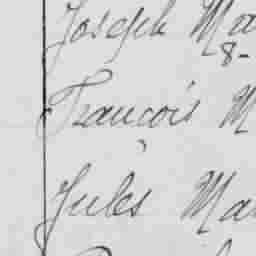 Joseph Ma
8-
François M
Jules Ma